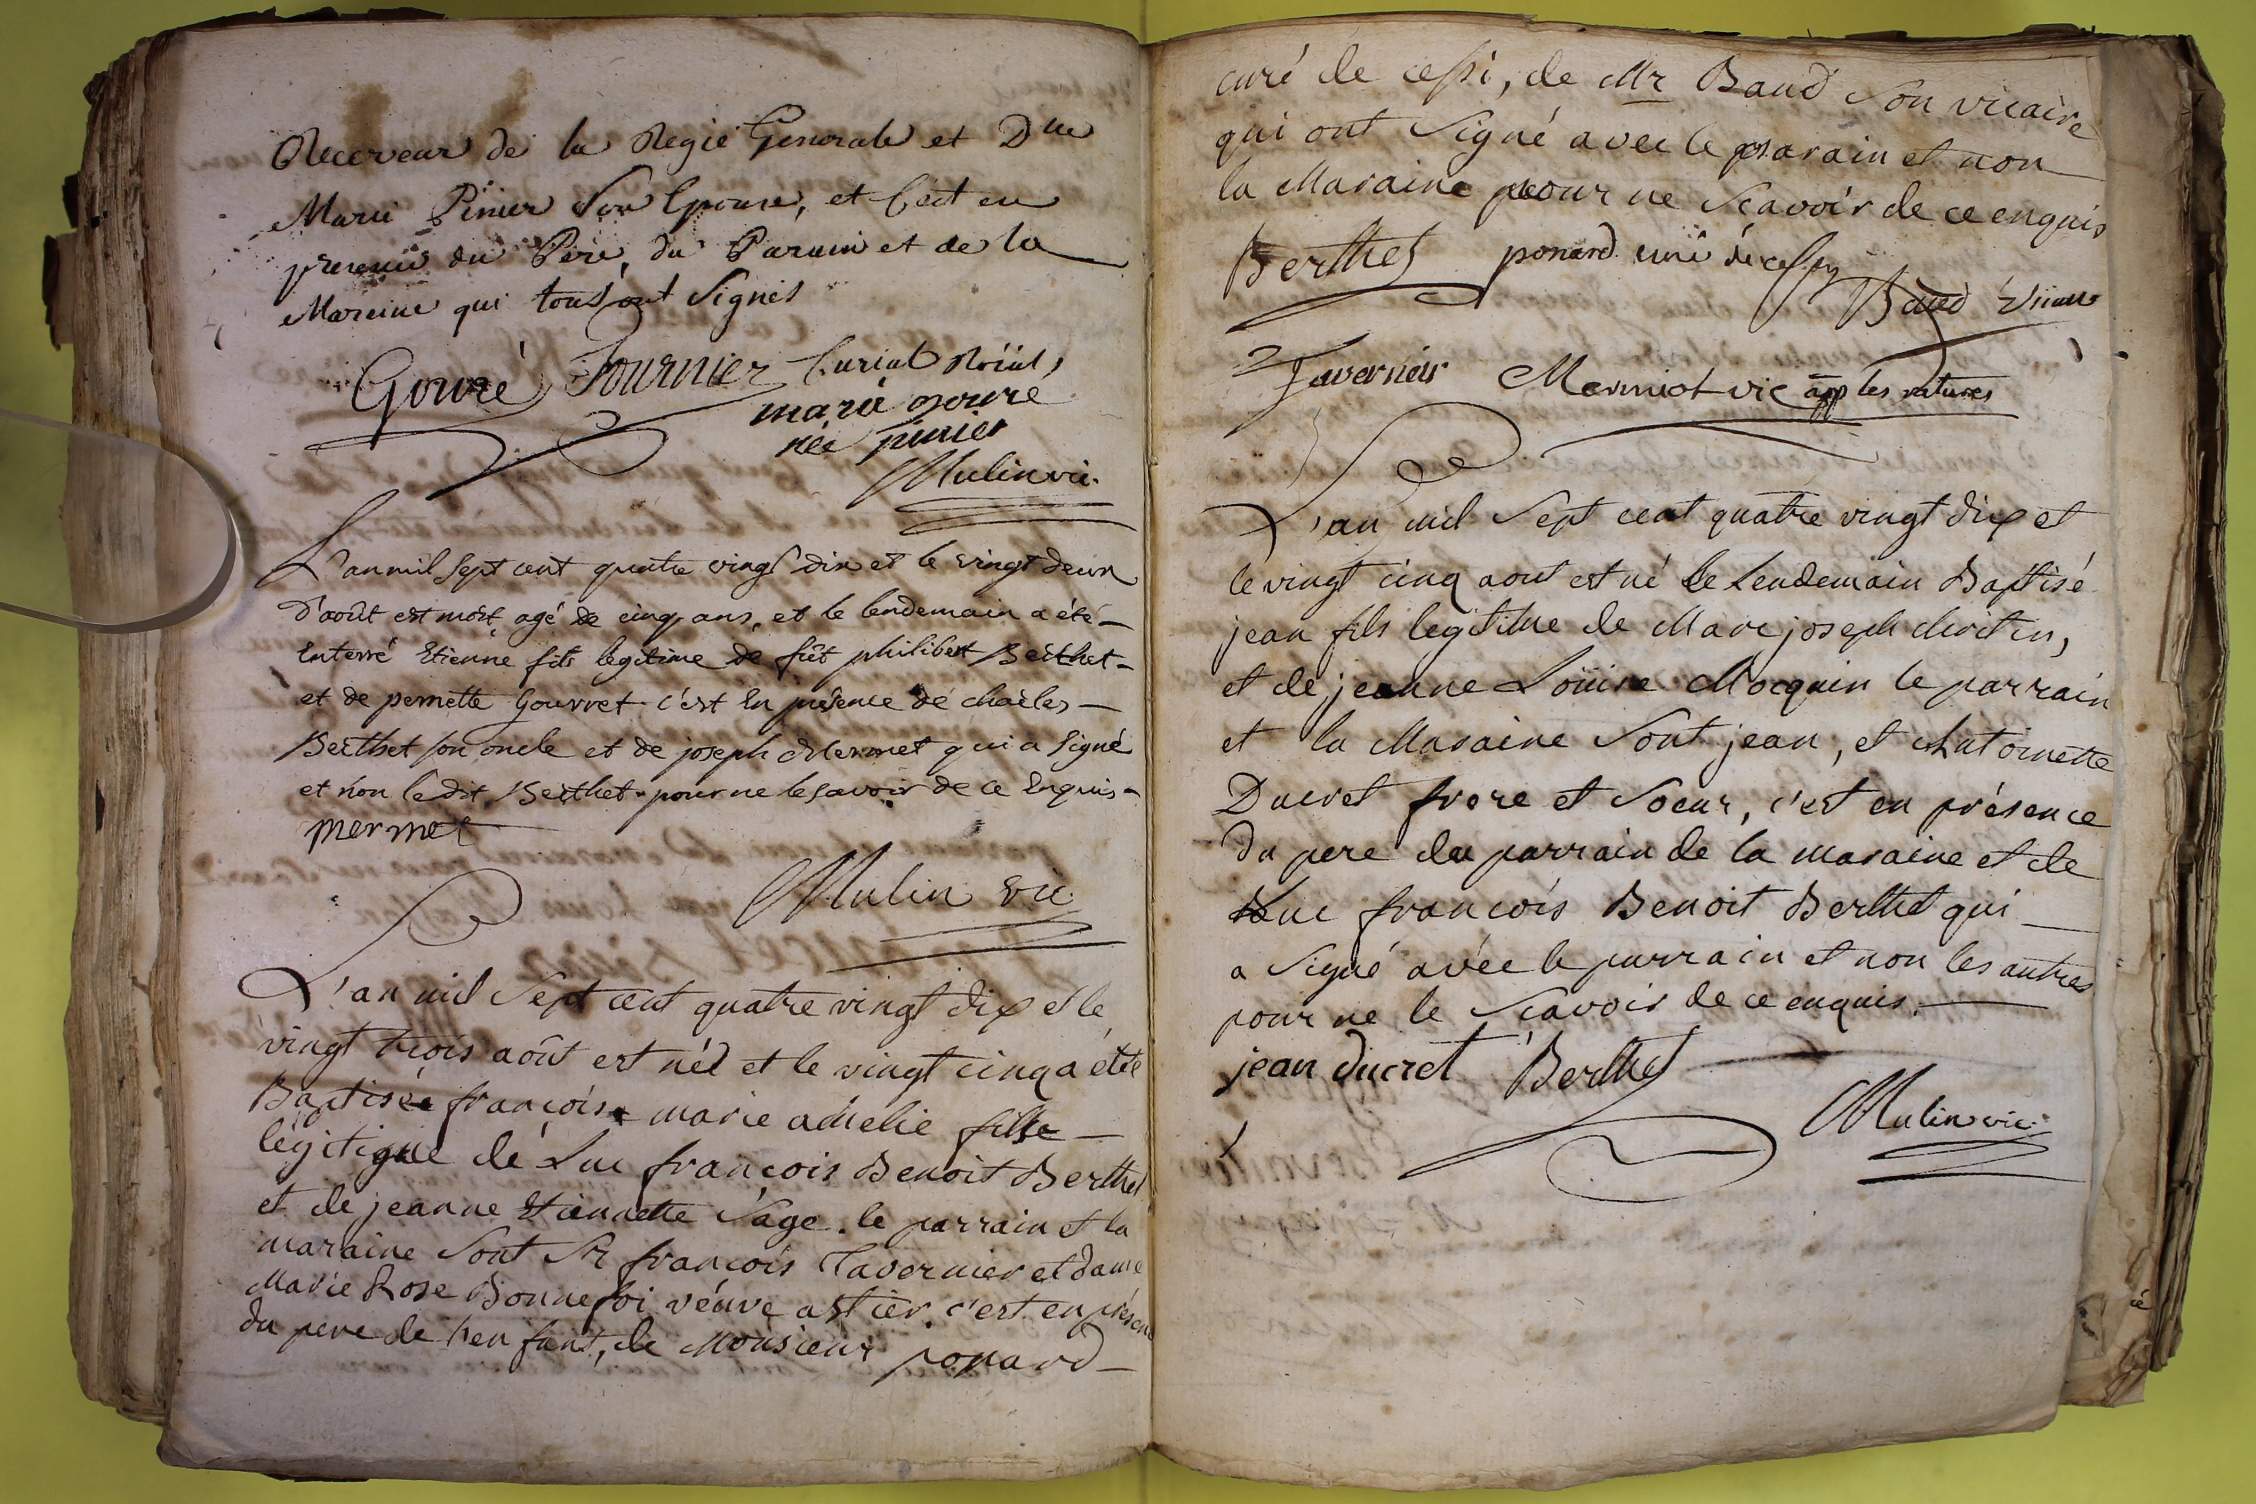 Receveur de la Regie Generale et Dlle
Marie Pinier Son Epouse, et C'est en
presence du Pere, du Parain et de la
Mareine qui tous ont Signés
Gouré Fournier Curial Roïal,
marie gouré
née pinier
Mulin vic.
L'an mil sept cent quatre vingt dix et le vingt deux
d'août est mort agé de cinq ans, et le lendemain a été
Enterré Etienne fils legitime de fût philibert Berthet
et de pernette Gourret c'est En présence de charles
Berthet son oncle et de joseph Mermet qui a Signé
et non ledit Berthet pour ne le savoir de ce Enquis
mermet
Mulin vic
L'an mil Sept cent quatre vingt dix et le
vingt trois août est néé et le vingt cinq a été
Baptisée françoise marie adhelie fille
légitime de Luc françois Benoit Berthet
et de jeanne Etiennette Sage. le parrain et la
maraine Sont Sr françois Tavernier et dame
Marie Rose Bonnefoi véuve astier. c'est en présence
du pere de l'enfant, de Monsieur ponard
curé de cessi, de Mr Baud Son vicaire
qui ont Signé avec le parain et non
la Maraine pour ne Scavoir de ce enquis
Berthet ponard curé de cessy
Baud Vicaire
Tavernier Mermiot vic app les ratures
L'an mil Sept cent quatre vingt dix et
le vingt cinq aout est né le Lendemain Baptisé
jean fils legitime de Marc joseph
et de jeanne Loüise Mocquin le parrain
et la Maraine Sont jean, et Antoinette
Ducret frere et Soeur, c'est en présence
du pere du parrain de la maraine et de
Luc françois Benoit Berthet qui
a Signé avéc le parrain et non les autres
pour ne le Scavoir de ce enquis.
jean ducret Berthet
Mulin vic.